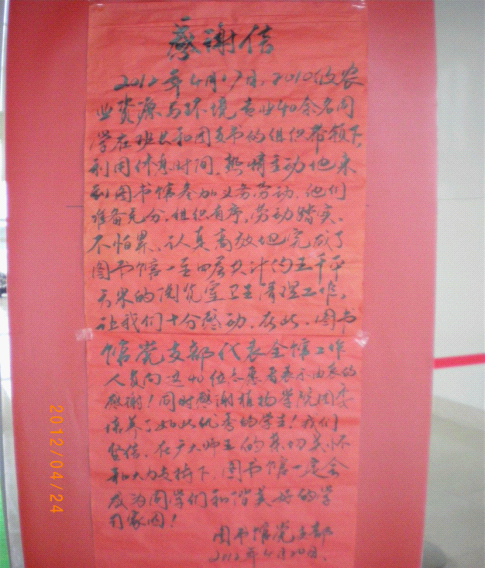 感谢信
2012年4月19日，2010级农
业资源与环境专业40余名同
学在班长和团支书的组织带领下
利用休息时间，热情主动地来
到图书馆参加义务劳动，他们
准备充分、组织有序、劳动踏实、
不怕累、认真高效地完成了
图书馆一至四层共计约五千平
方米的阅览室卫生清理工作，
让我们十分感动，在此，图书
馆党支部代表全馆工作
人员向这40位志愿者表示由衷的
感谢！同时感谢植物学院团委
培养了如此优秀的学生！我们
坚信，在广大师生的亲切关怀
和大力支持下，图书馆一定会
成为同学们和谐美好的学
习家园！
图书馆党支部
2012年4月20日
2012/04/24